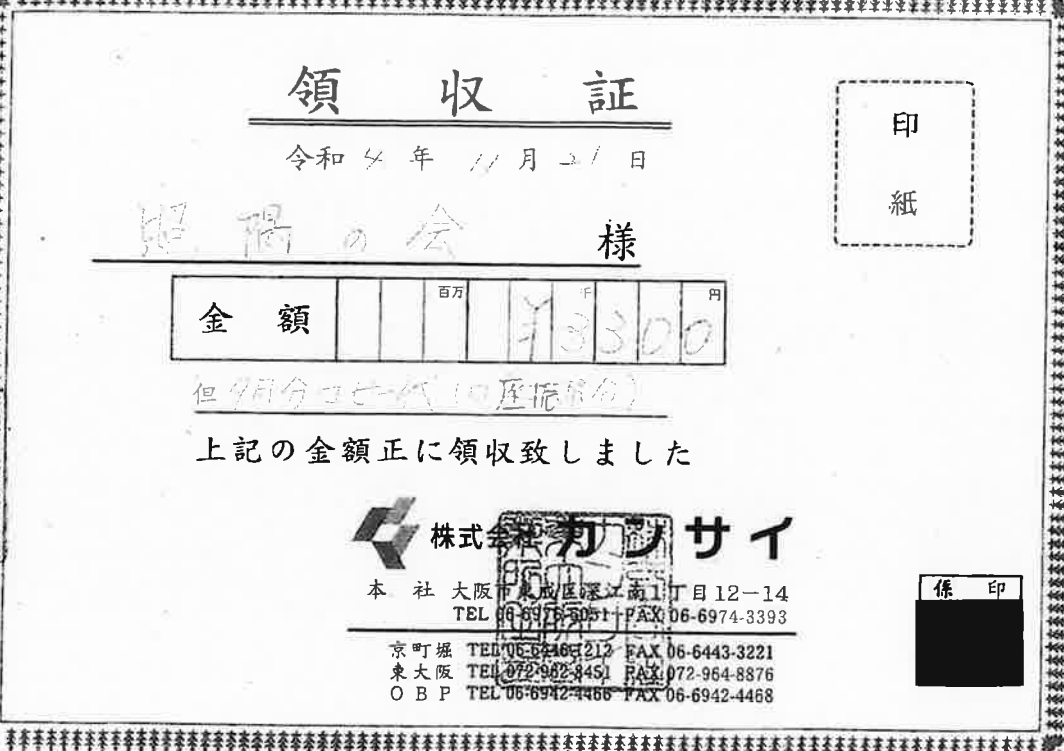 領収証
印
紙
令和4年11月21日
昭陽の会 様
金額 百万 千 円
¥3300
但 9月分コピー代(口座振替分)
上記の金額正に領収致しました
株式会社 カンサイ
本社 大阪市東成区深江南1丁目12-14
TEL 06-6976-6051 FAX 06-6974-3393
京町堀 TEL 06-6446-1212 FAX 06-6443-3221
東大阪 TEL 072-962-8451 FAX 072-964-8876
OBP TEL 06-6942-4466 FAX 06-6942-4468
係印